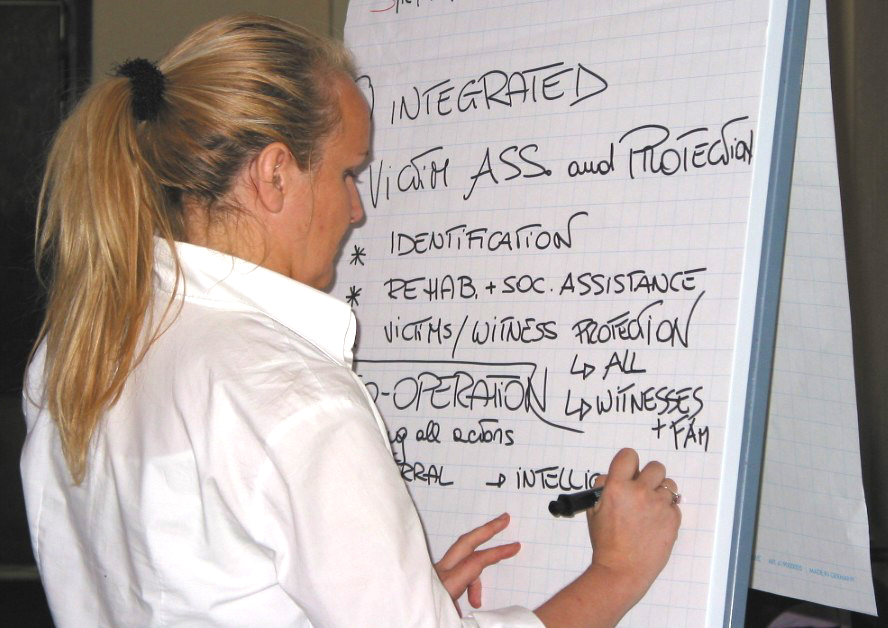 INTEGRATED
VICTIM ASS. and PROTECTION
* IDENTIFICATION
* REHAB. + SOC. ASSISTANCE
VICTIMS/WITNESS PROTECTION
↳ ALL
↳ WITNESSES
+ FAM
O-OPERATION
g all actors
ERRAL → INTELLIG
MADE IN GERMANY